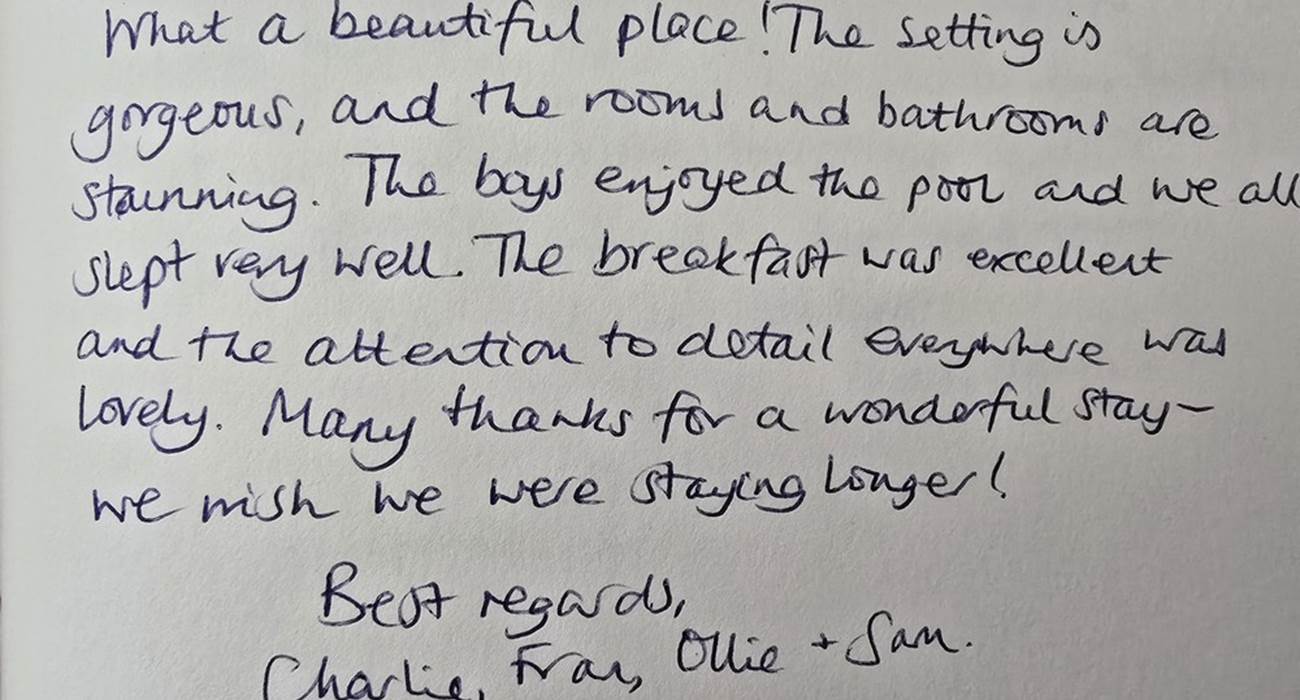 What a beautiful place! The setting is
gorgeous, and the rooms and bathrooms are
stunning. The boys enjoyed the pool and we all
slept very well. The breakfast was excellent
and the attention to detail everywhere was
lovely. Many thanks for a wonderful stay –
we wish we were staying longer!
Best regards,
Charlie, Fran, Ollie + Sam.